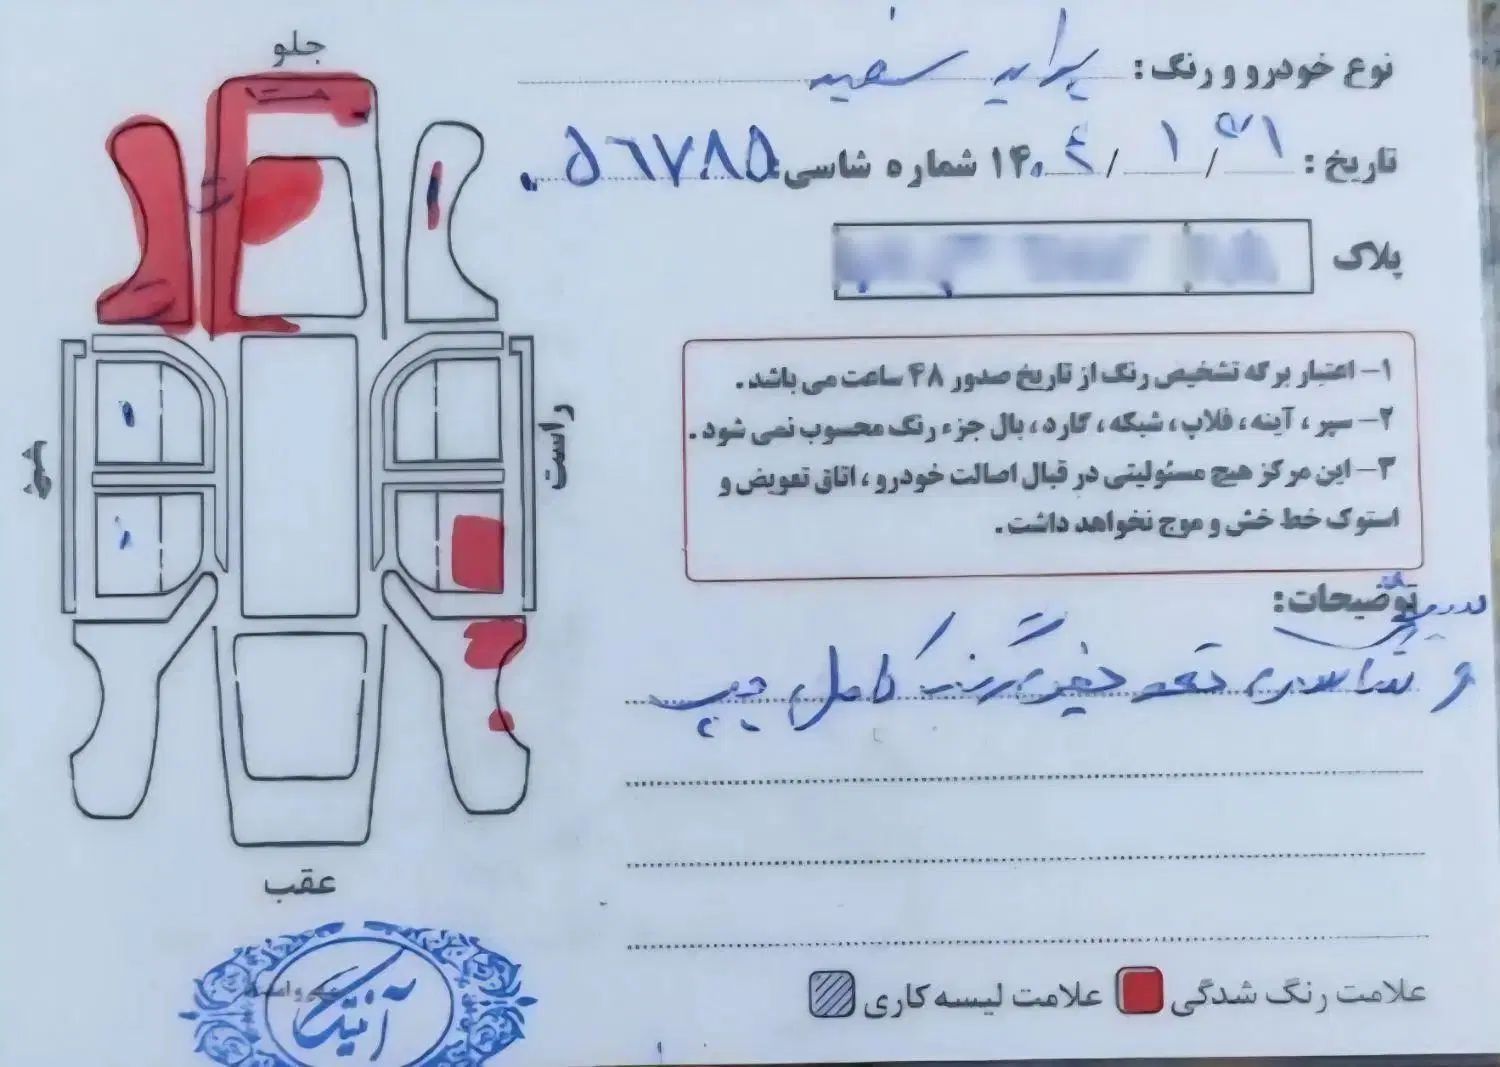 جلو
نوع خودرو و رنگ: پراید سفید
تاریخ: ۲۱ / ۱ / ۱۴۰۴ شماره شاسی: ۰۵۶۷۸۵
پلاک
۱- اعتبار برگه تشخیص رنگ از تاریخ صدور ۴۸ ساعت می باشد.
۲- سپر، آینه، فلاپ، شبکه، گارد، بال جزء رنگ محسوب نمی شود.
۳- این مرکز هیچ مسئولیتی در قبال اصالت خودرو، اتاق تعویض و
استوک خط خش و موج نخواهد داشت.
راست
چپ
توضیحات:
کامل
عقب
علامت رنگ شدگی
علامت لیسه کاری
آنتیک